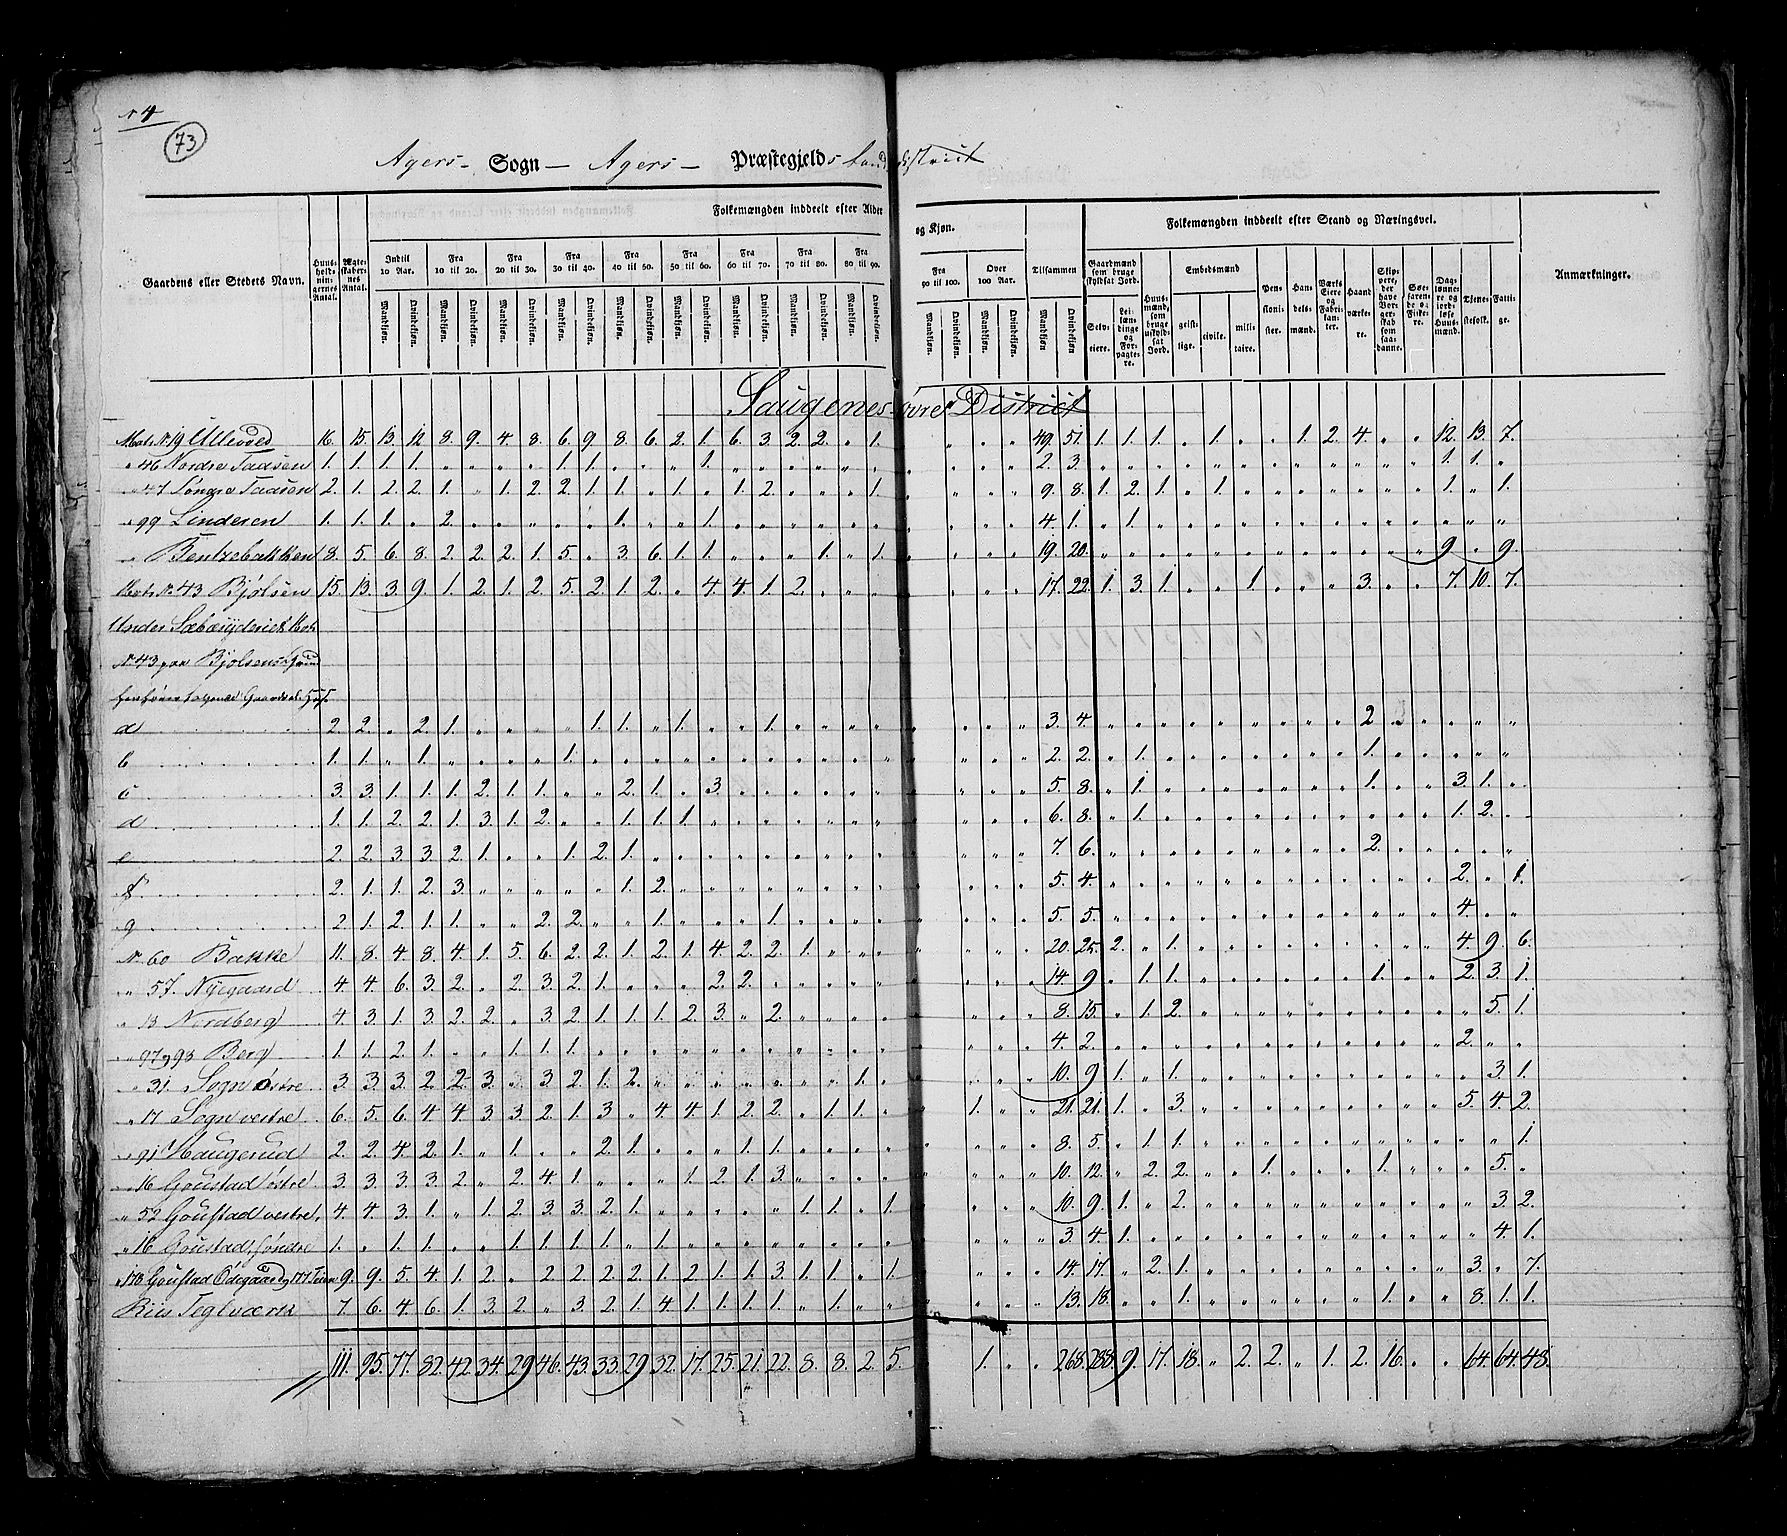 N 4
73
Agers Sogn — Agers — Præstegjelds Landdistrict
Gaardens eller Stedets Navn.
Huusholdningernes Antal.
Ægteskabernes Antal.
Folkemængden inddeelt efter Alder og Kjøn.
Indtil 10 Aar. Fra 10 til 20. Fra 20 til 30. Fra 30 til 40. Fra 40 til 50. Fra 50 til 60. Fra 60 til 70. Fra 70 til 80. Fra 80 til 90. Fra 90 til 100. Over 100 Aar. Tilsammen
Mandkjøn. Qvindekjøn.
Folkemængden inddeelt efter Stand og Næringsvei.
Gaardmænd som bruge skyldsat Jord.
Selveiere. Leilændinge og Forpagtere.
Huusmænd, som bruge uskyldsat Jord.
Embedsmænd
geistlige. civile. militaire.
Pensionister. Handelsmænd. Værks Eiere og Fabrikanter. Haandværkere. Skippere, der have Borgerskab som saadanne. Søefarende og Fiskere. Daglønnere og jordløse Huusmænd. Tjenestefolk. Fattige.
Anmærkninger.
Saugenes øvre District
Matr. N. 19 Ullevoed 16. 15. 13. 12. 8. 9. 4. 8. 6. 9. 8. 6. 2. 1. 6. 3. 2. 2. „ 1. „ „ „ 49. 51. 1. 1. 1. „ 1. „ „ 1. 2. 4. „ „ 12. 13. 7.
„ 46 Nordre Taasen 1. 1. 1. 1. „ „ „ „ 1. 1. „ „ „ 1. „ „ „ „ „ „ „ „ „ „ 2. 3. „ „ „ „ „ „ „ „ „ „ „ „ 1. 1. „
„ 47 Søndre Taasen 2. 1. 2. 2. 1. „ 1. 2. 2. 1. 1. „ 1. „ 1. 2. „ „ „ 1. „ „ „ „ 9. 8. 1. 2. 1. „ 1. „ „ „ „ „ „ „ 1. „ 1.
„ 99 Linderen 1. 1. 1. „ 2. „ „ „ „ „ 1. „ „ 1. „ „ „ „ „ „ „ „ „ „ 4. 1. „ 1. „ „ „ „ „ „ „ „ „ „ „ „ „
„ Bentzebakken 8. 5. 6. 8. 2. 2. 2. 1. 5. „ 3. 6. 1. 1. „ „ „ 1. „ 1. „ „ „ „ 19. 20. „ „ „ „ „ „ „ „ „ „ „ „ 9. „ 9.
Matr. N. 43 Bjølsen 15. 13. 3. 9. 1. 2. 1. 2. 5. 2. 1. 2. „ 4. 4. 1. 2. „ „ „ „ „ „ 17. 22. 1. 3. 1. „ „ 1. „ „ „ 3. „ „ 7. 10. 7.
Under Sæbesyderiet Matr.
N. 43 paa Bjølsens Grund
a 2. 2. „ 2. 1. „ „ „ „ 1. 1. „ 1. „ „ 1. „ „ „ „ „ „ „ 3. 4. „ „ „ „ „ „ „ „ „ 2 „ „ „ „ „
b 1. 1. „ 1. „ „ „ „ 1. „ „ „ „ „ „ „ „ „ „ „ „ „ „ 2. 2. „ 1. „ „ „ „ „ „ „ 1. „ „ „ „ „
c 3. 3. 1. 1. 1. 2. 1. 1. „ „ 2. 1. „ 3. „ „ „ „ „ „ „ „ „ 5. 8. „ 1. „ „ „ „ „ „ „ 1. „ „ 3. 1. „
d 1. 1. 2. 2. 1. 3. 1. 2. „ „ 1. 1. 1. „ „ „ „ „ „ „ „ „ „ 6. 8. „ 1. „ „ „ „ „ „ „ „ „ „ 1. 2. „
e 2. 2. 3. 3. 2. 1. „ „ 1. 2. 1. „ „ „ „ „ „ „ „ „ „ „ „ 7. 6. „ „ „ „ „ „ „ „ „ 2. „ „ „ „ „
f 2. 1. 1. 2. 3. „ „ „ „ „ 1. 2. „ „ „ „ „ „ „ „ „ „ „ 5. 4. „ „ „ „ „ „ „ „ „ „ „ „ 2. „ 1.
g 2. 1. 2. 1. 1. „ „ 2. 2. „ „ 1. „ „ „ 1. „ „ „ „ „ „ „ 5. 5. „ „ „ „ „ „ „ „ „ „ „ „ 4. „ „
N. 60 Bakke 11. 8. 4. 8. 4. 1. 5. 6. 2. 2. 1. 2. 1. 4. 2. 2. 1. „ „ „ „ „ „ 20. 25. 2. „ 1. „ „ „ „ „ „ „ „ „ 4. 9. 6.
„ 57. Nyegaard 4. 4. 6. 3. 2. „ 2. 3. 2. 1. „ „ „ 2. 2. „ „ „ „ „ „ „ „ 14. 9. „ 1. 1. „ „ „ „ „ „ 1. „ „ 2. 3. 1.
„ 13 Nordberg 4. 3. 1. 3. 2. 2. „ 3. 2. 1. 1. 1. 2. 3. „ 2. „ „ „ „ „ „ „ 8. 15. „ 1. 2. „ „ „ „ „ „ „ „ „ „ 5. 1.
„ 97 og 93 Berg 1. 1. 2. 1. „ „ 1. 1. 1. „ „ „ „ „ „ „ „ „ „ „ „ „ „ 4. 2. „ „ „ „ „ „ „ „ „ „ „ „ 2. „ „
„ 31. Sogn østre 3. 3. 3. 2. 2. 3. „ 3. 2. 1. 2. „ „ „ „ „ „ „ 1. „ „ „ „ 10. 9. 1. „ 1. „ „ „ „ „ „ „ „ „ „ 3. 1.
„ 17 Sogn vestre 6. 5. 6. 4. 4. 3. 3. 2. 1. 3. „ 4. 4. 1. 2. 2. „ 1. 1. „ „ 1. „ „ 21. 21. 1. „ 3. „ „ „ „ „ „ „ „ „ 5. 4. 2.
„ 91 Haugerud 2. 2. 4. 2. 1. „ 1. „ „ 2. 1. „ „ „ 1. 1. „ „ „ „ „ „ „ 8. 5. „ 1. 1. „ „ „ „ „ „ „ „ „ „ „ 1.
„ 16 Goustad østre 3. 3. 3. 3. 2. „ 2. 4. 1. „ „ „ 1. 2. 1. 3. „ „ „ „ „ „ „ 10. 12. „ 2. 2. „ „ 1. „ „ „ 1. „ „ „ 5. „
„ 52 Goustad vestre. 4. 4. 3. 1. „ 1. 2. 3. 3. 2. 1. „ „ „ „ „ 1. 1. „ 1. „ „ „ 10. 9. 1. „ 2. „ „ „ „ „ „ „ „ „ „ 3. 2.
„ 16 Goustad, søndre 1. „ 1. 1. „ „ 1. 1. 1. 1. „ 1. „ „ „ „ „ „ „ „ „ „ „ 3. 4. 1. „ „ „ „ „ „ „ „ „ „ „ „ 4. 1.
„ 178 Goustad Ødegaard og 177 Tuen 9. 9. 5. 4. 1. 2. „ 2. 2. 2. 2. 1. 2. 1. 1. 3. 1. 1. „ 1. „ „ „ 14. 17. „ 2. 1. „ „ „ „ „ „ „ „ „ 3. „ 7.
Riis Teglværk 7. 6. 4. 6. 1. 3. 2. „ 3. 2. 1. 4. 1. 1. 1. 1. „ 1. „ „ „ „ „ 13. 18. „ „ 1. „ „ „ „ „ „ 1. „ „ 8. 1. 1.
111. 95. 77. 82. 42. 34. 29. 46. 43. 33. 29. 32. 17. 25. 21. 22. 8. 8. 2. 5. 1. „ „ 268. 288. 9. 17. 18. „ 2. 2. „ 1. 2. 16. „ „ 64. 64. 48.